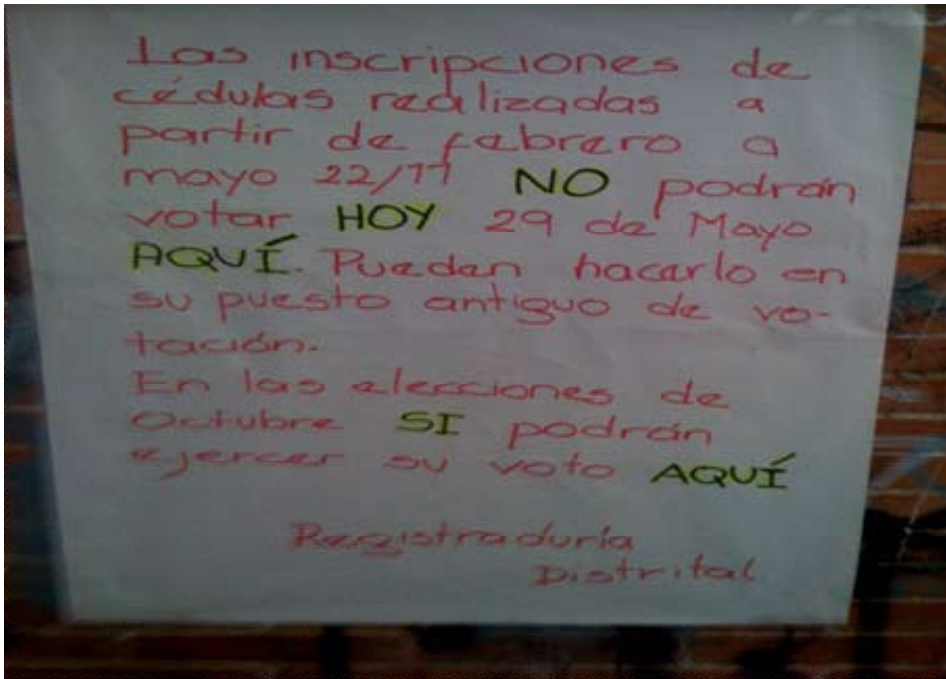 Las inscripciones de
cédulas realizadas a
partir de febrero a
mayo 22/11 NO podrán
votar HOY 29 de Mayo
AQUÍ. Pueden hacerlo en
su puesto antiguo de vo-
tación.
En las elecciones de
Octubre SI podrán
ejercer su voto AQUÍ
Registraduría
Distrital